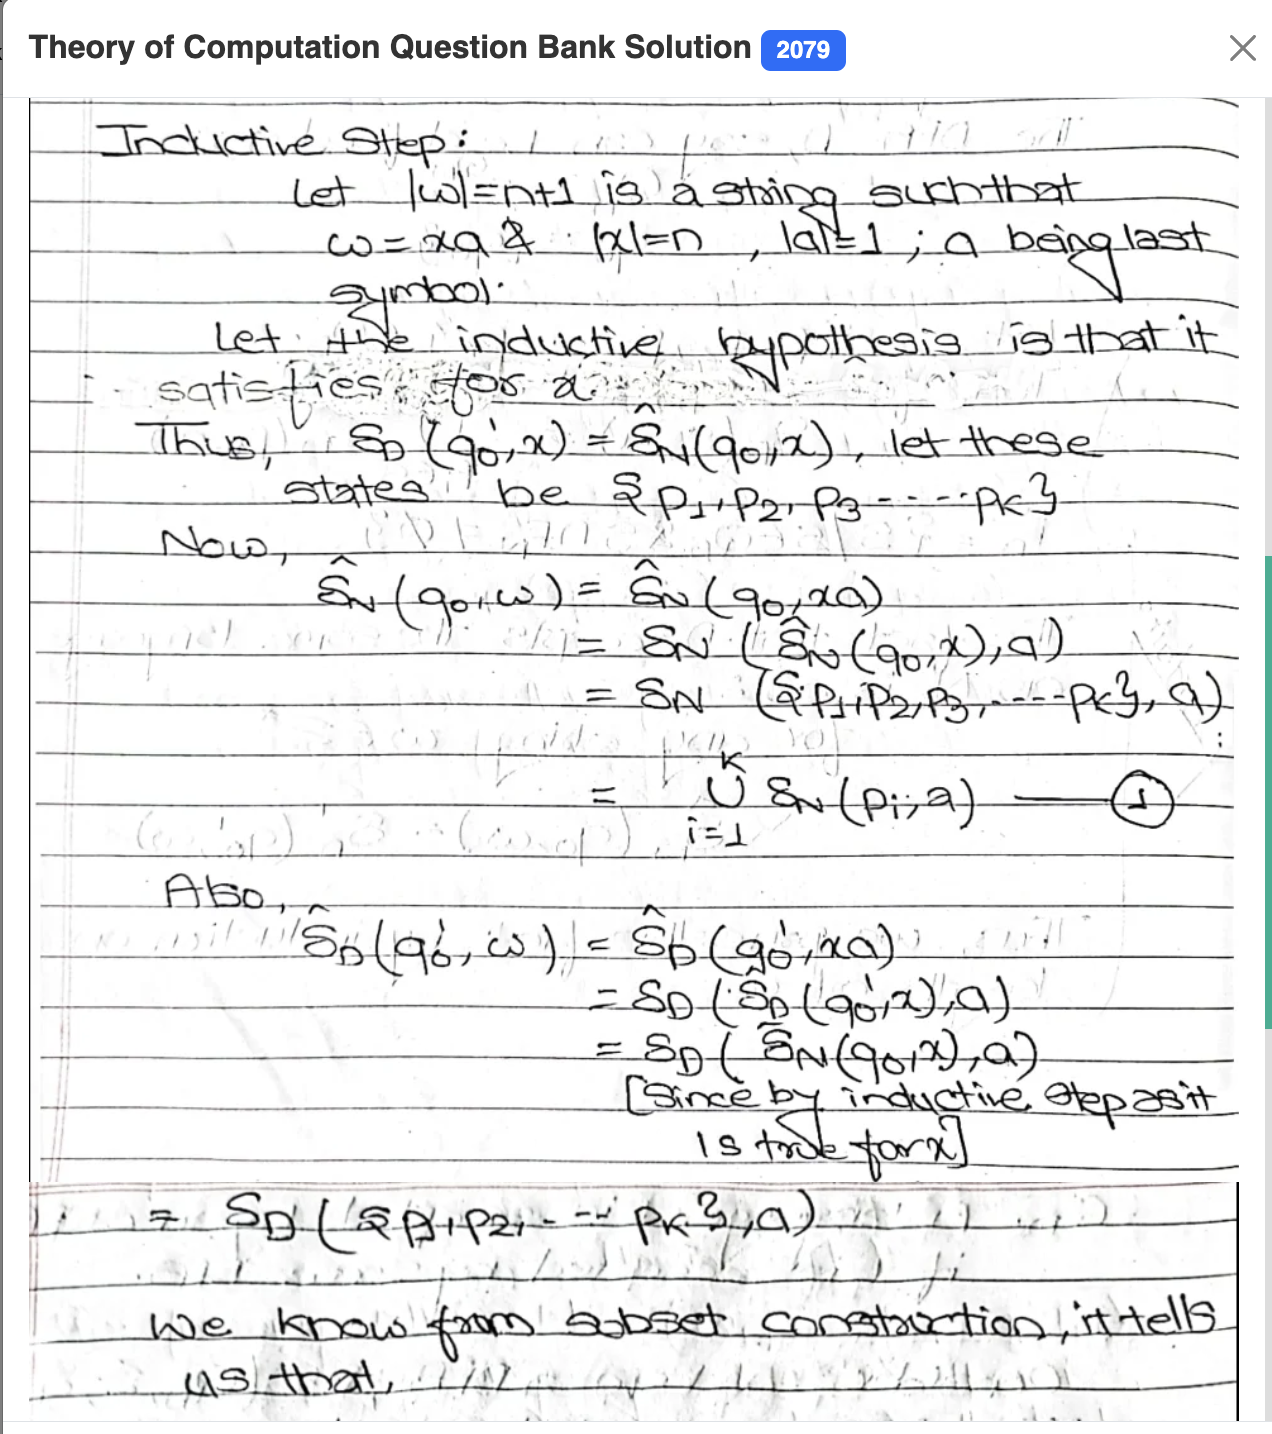 Theory of Computation Question Bank Solution 2079
Inductive Step:
Let |ω|=n+1 is a string such that
ω = xa & |x|=n , |a|=1 ; a being last
symbol.
Let the inductive hypothesis is that it
satisfies for x.
Thus, δD (q₀', x) = δ̂N(q₀, x), let these
states be {p₁, p₂, p₃ ----- pK}
Now,
δ̂N (q₀, ω) = δ̂N (q₀, xa)
= δN ( δ̂N (q₀, x), a)
= δN ({p₁, p₂, p₃, ---- pK}, a)
K
= ∪ δN (pi, a) —— ①
i=1
Also,
δ̂D (q₀', ω) = δ̂D (q₀', xa)
= δD ( δ̂D (q₀', x), a)
= δD ( δ̂N(q₀, x), a)
[Since by inductive step as it
is true for x]
= δD ( {p₁, p₂, - -- pK}, a)
We know from subset construction, it tells
us that,